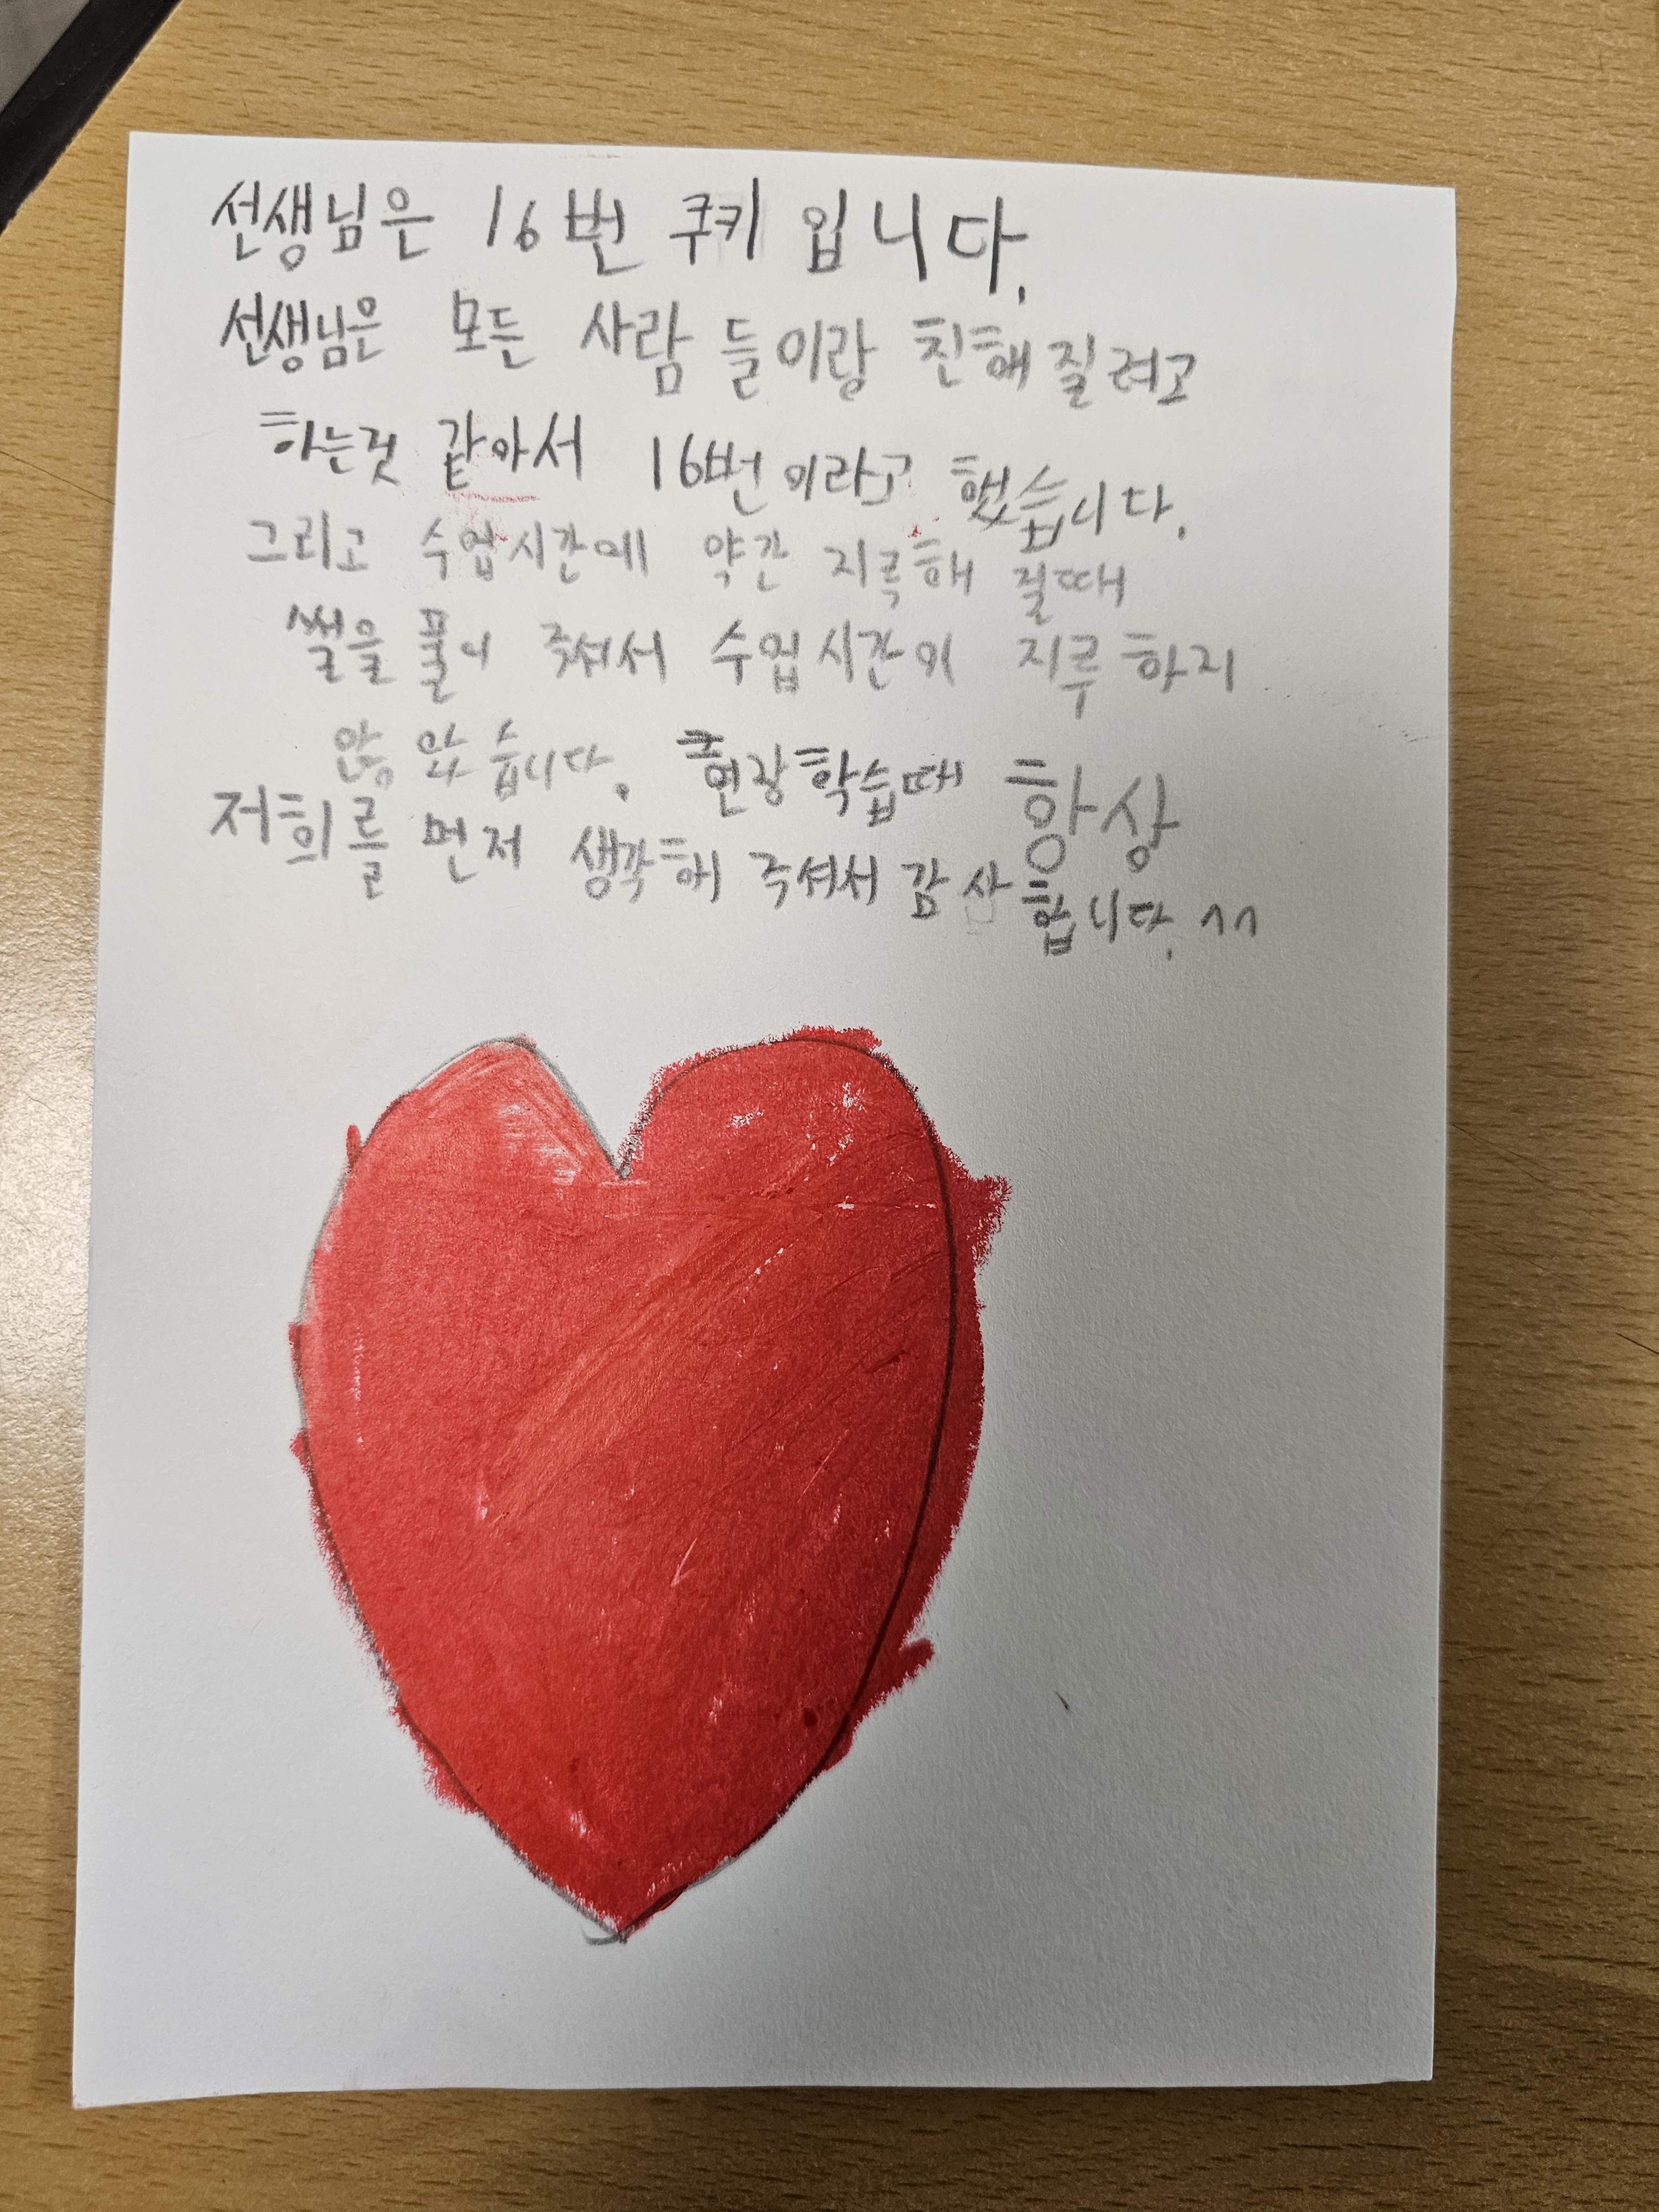 선생님은 16번 쿠키 입니다.
선생님은 모든 사람 들이랑 친해 질려고
하는것 같아서 16번 이라고 했습니다.
그리고 수업시간에 약간 지륵해 질때
썰을 풀어 주셔서 수업시간이 지루 하지
않았습니다. 현장학습때 항상
저희를 먼저 생각해 주셔서 감사합니다. ^^